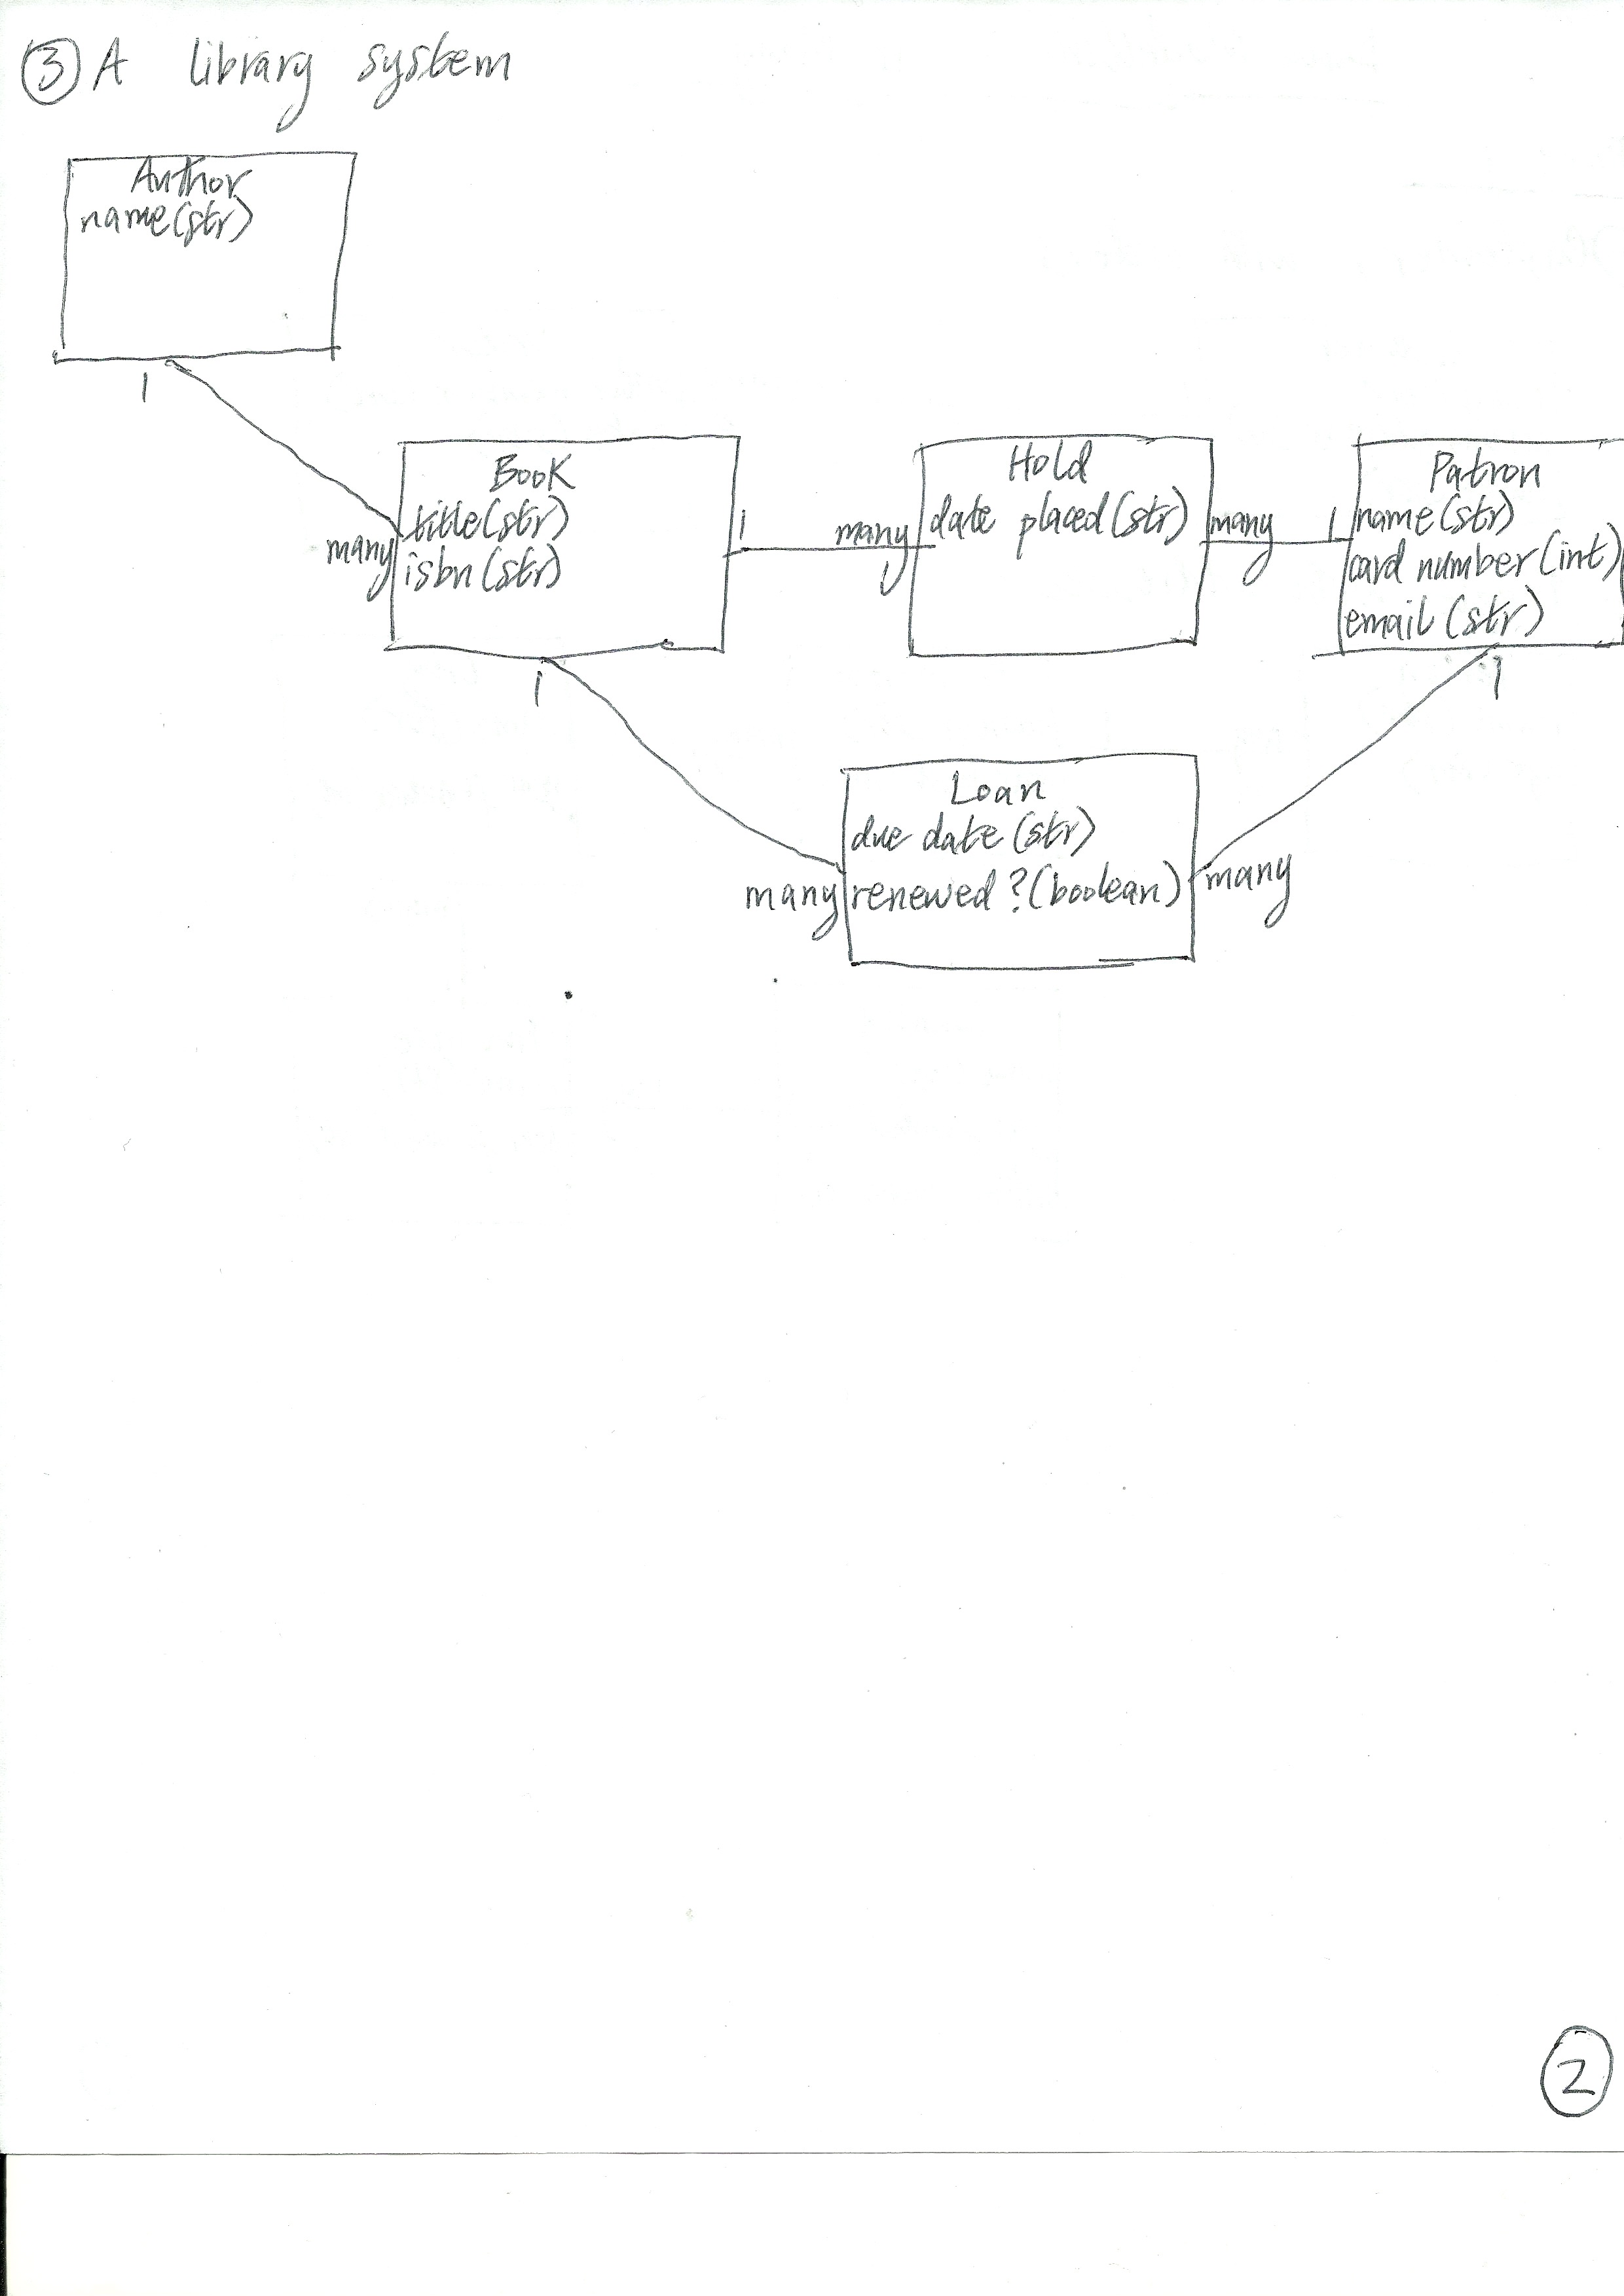 ③ A library system
Author
name(str)
1
many
Book
title(str)
isbn(str)
1
many
Hold
date placed(str)
many
1
Patron
name(str)
card number(int)
email(str)
1
1
many
Loan
due date(str)
renewed?(boolean)
many
②